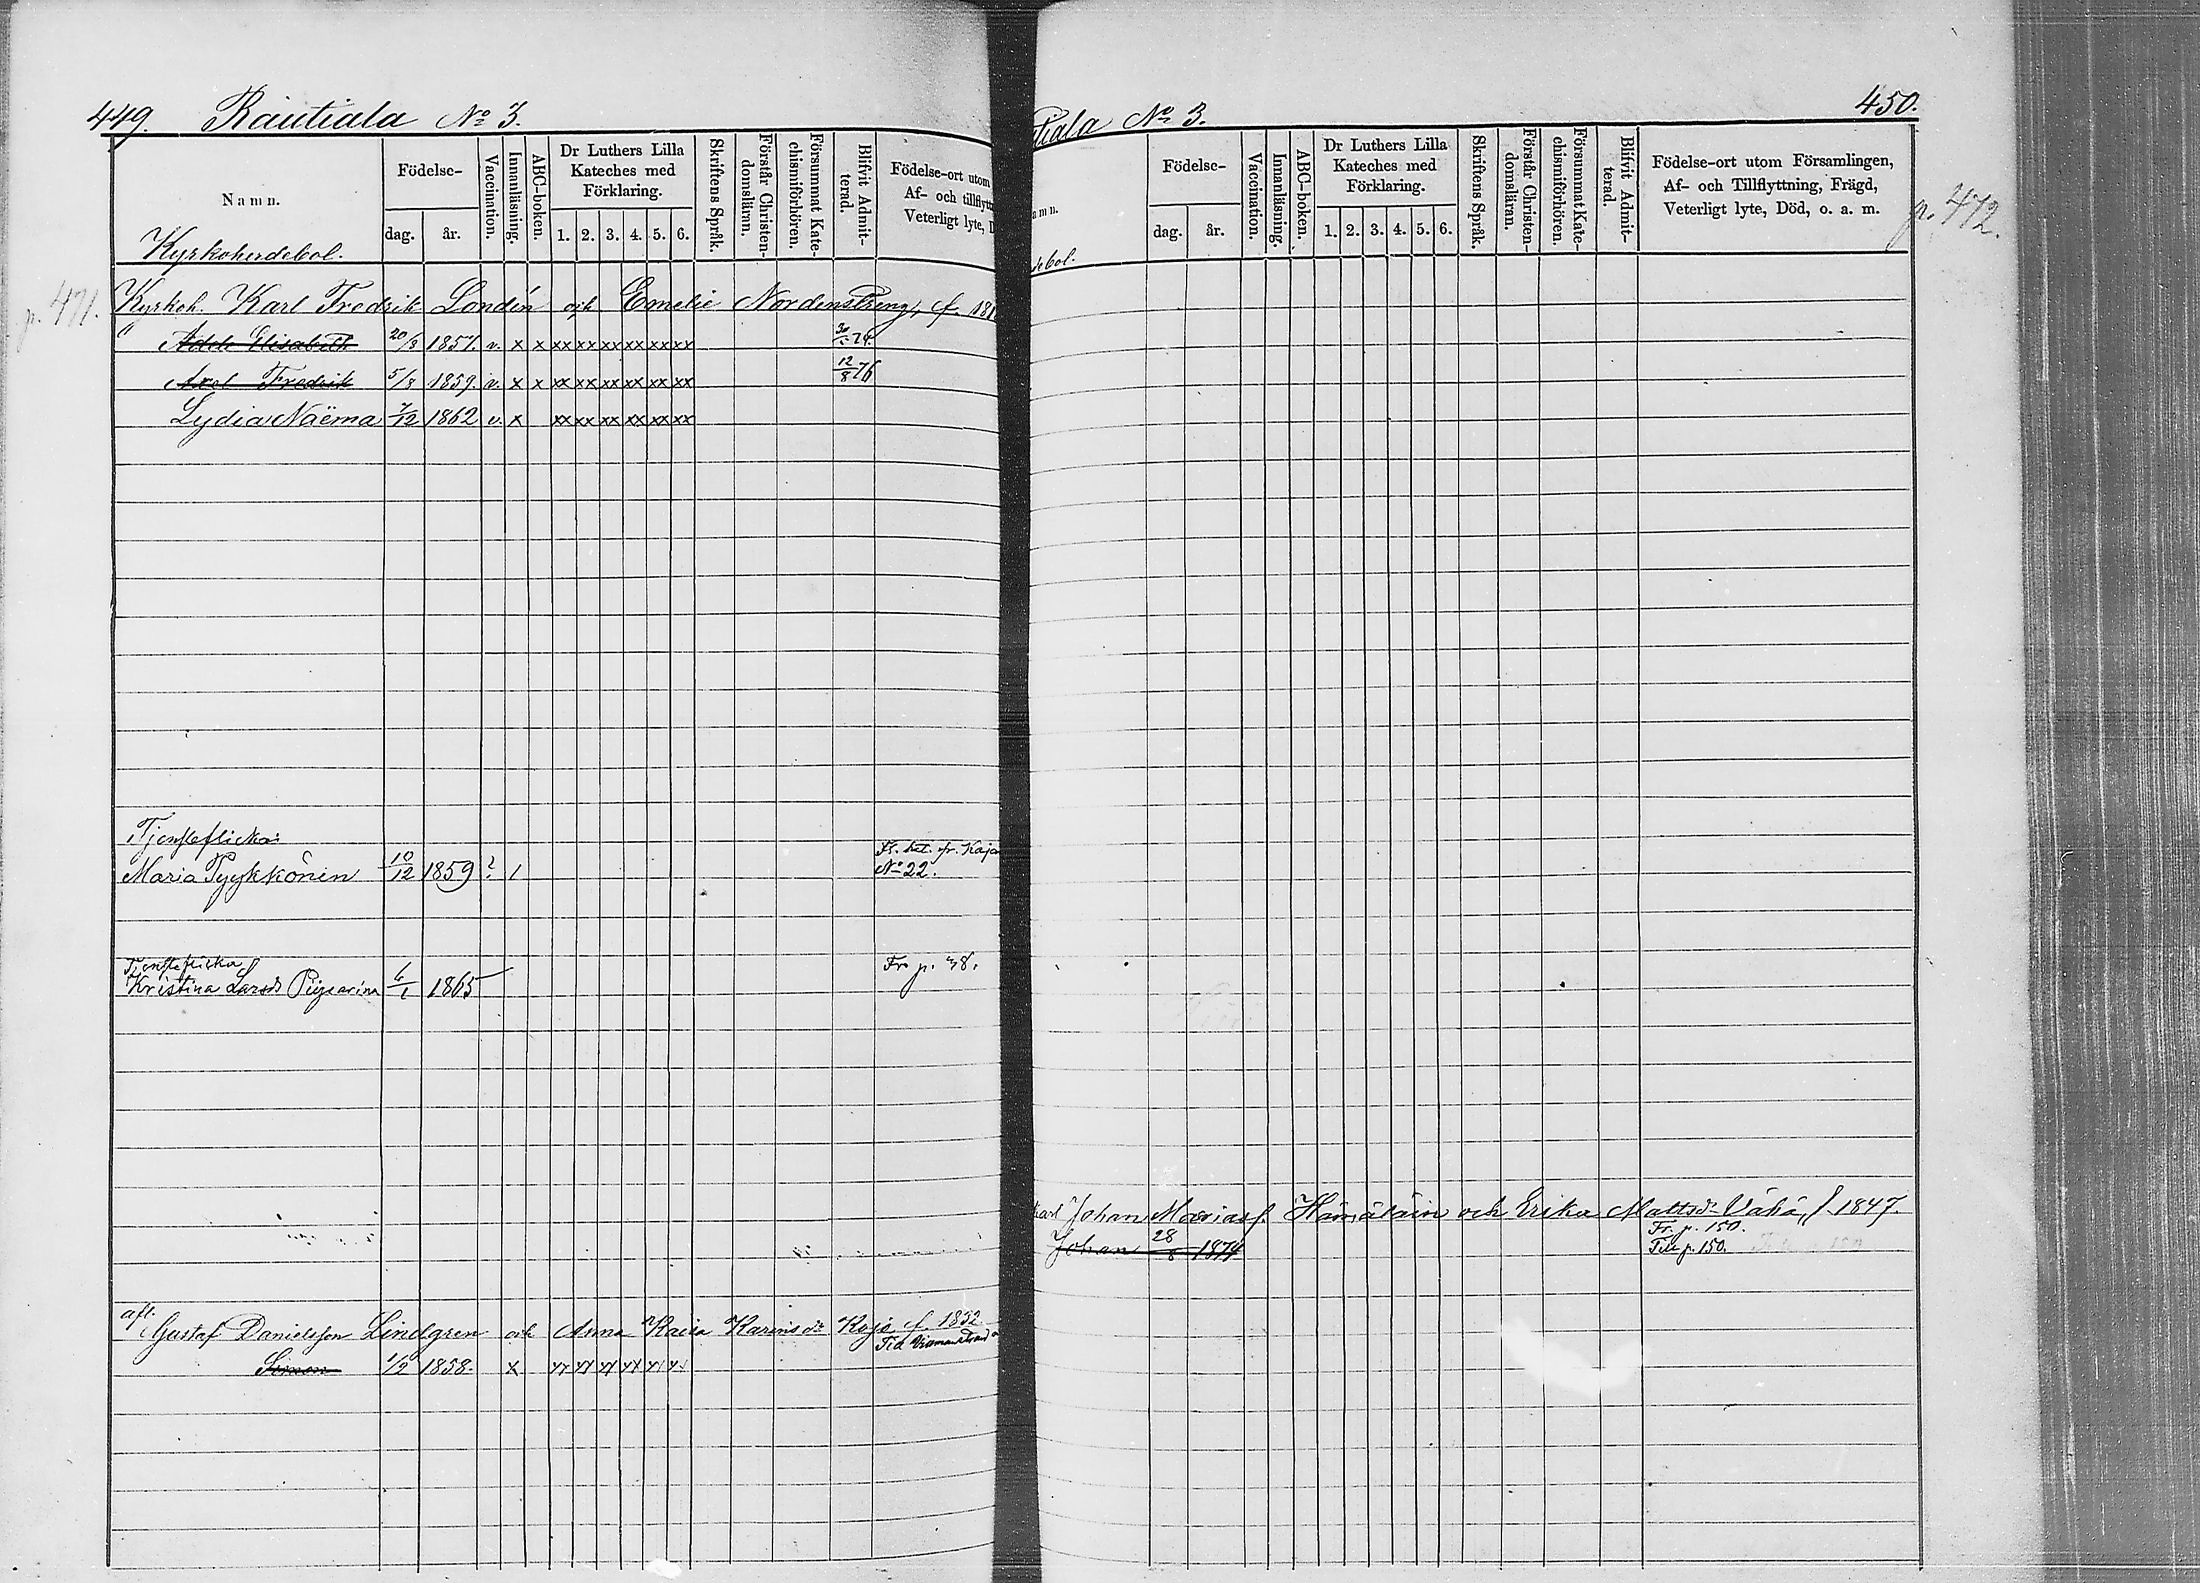 449. Rautiala No 3.
Namn.
Födelse-
dag. år.
Vaccination.
Innanläsning.
ABC-boken.
Dr Luthers Lilla Kateches med Förklaring.
1. 2. 3. 4. 5. 6.
Skriftens Språk.
Förstår Christendomsläran.
Försummat Katechismiförhören.
Blifvit Admitterad.
Födelse-ort utom
Af- och tillflyttn
Veterligt lyte, D
Kyrkoherdebol.
p. 471.
Kyrkoh. Karl Fredrik Londén och Emelie Nordenstreng, f. 18
" Adele Elisabeth 20/3 1857. v. x x xx xx xx xx xx xx
Axel Fredrik 5/8 1859. v. x x xx xx xx xx xx xx 12/8 76
Lydia Naëma 7/12 1862 v. x xx xx xx xx xx xx
Tjensteflicka:
Maria Pyykkönen 10/12 1859 ? / Fr. bet. fr. Kaja
No 22.
Tjensteflicka
Kristina Larsd. 6/1 1865 Fr. p. 38.
Gustaf Danielsson Lindgren och Anna Kaisa Karinsdr Kojo f. 1832.
Simon 1/2 1858. x xx xx xx xx xx xx
450.
tiala No 3.
amn.
Födelse-
dag. år.
Vaccination.
Innanläsning.
ABC-boken.
Dr Luthers Lilla Kateches med Förklaring.
1. 2. 3. 4. 5. 6.
Skriftens Språk.
Förstår Christendomsläran.
Försummat Katechismiförhören.
Blifvit Admitterad.
Födelse-ort utom Församlingen,
Af- och Tillflyttning, Frägd,
Veterligt lyte, Död, o. a. m.
p. 472.
debol.
Johan Mariasf. Hämäläin och Erika Mattsdr Vähä, f. 1847.
Fr. p. 150.
Johan 28/8 1874 Till p. 150.